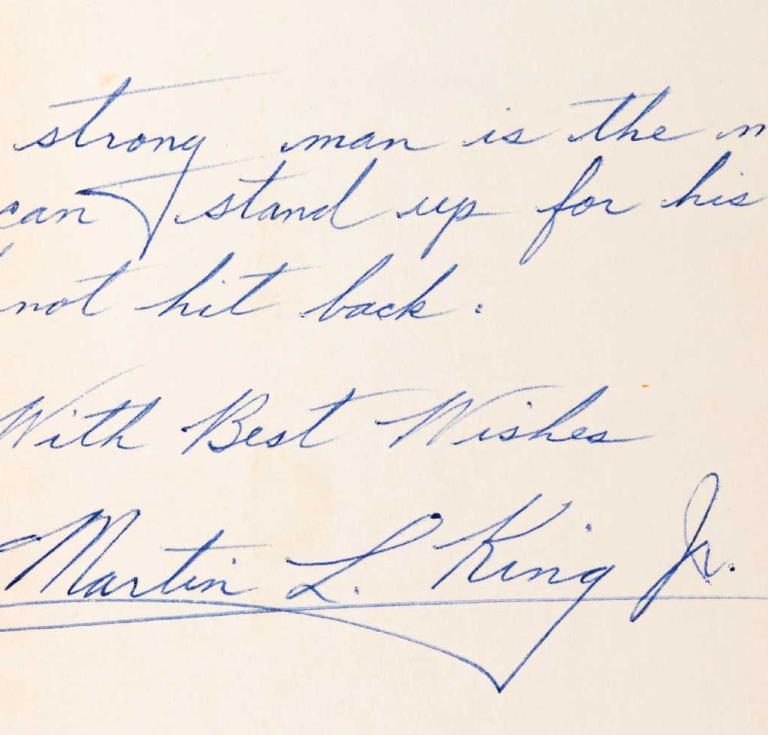 strong man is the
can stand up for his
not hit back.
With Best Wishes
Martin L. King Jr.